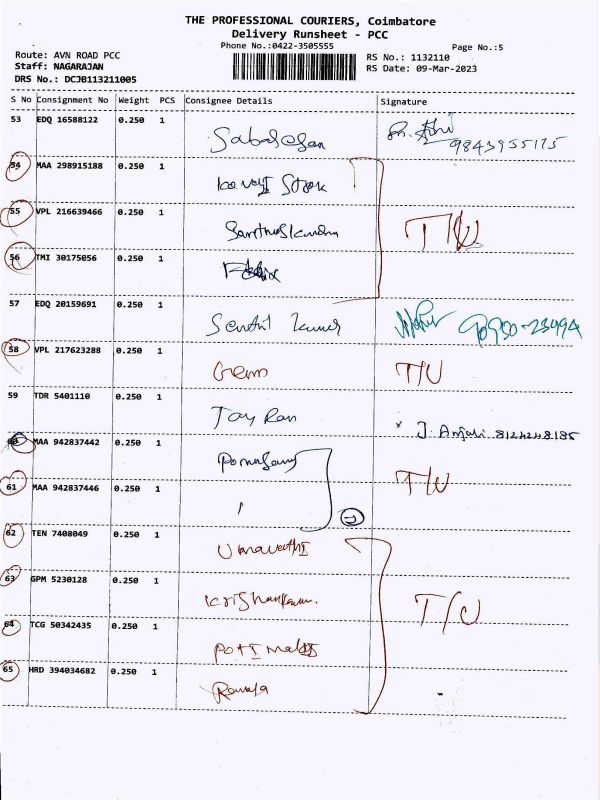 THE PROFESSIONAL COURIERS, Coimbatore
Delivery Runsheet - PCC
Phone No.:0422-3505555
Page No.:5
Route: AVN ROAD PCC
RS No.: 1132110
Staff: NAGARAJAN
RS Date: 09-Mar-2023
DRS No.: DCJB113211005
S No Consignment No Weight PCS Consignee Details Signature
53 EDQ 16588122 0.250 1
9843955175
54 MAA 298915188 0.250 1
55 VPL 216639466 0.250 1
56 TMI 30175056 0.250 1 Felix
57 EDQ 20159691 0.250 1 Senthil Kumar
58 VPL 217623288 0.250 1 Gem T/U
59 TDR 5401110 0.250 1 Jay Ram
J. Anjali 8124248185
60 MAA 942837442 0.250 1
61 MAA 942837446 0.250 1
62 TEN 7408049 0.250 1
63 GPM 5230128 0.250 1
T/U
64 TCG 50342435 0.250 1
65 HRD 394034682 0.250 1